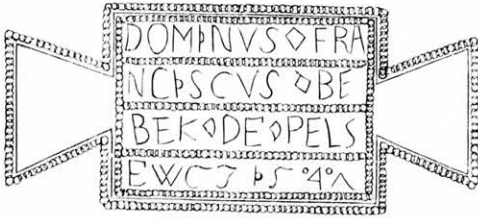 DOMÞNVS◊FRA
NCÞSCVS ◊BE
BEK◊DE◊PELS
EWCZ Þ5 °4°Λ